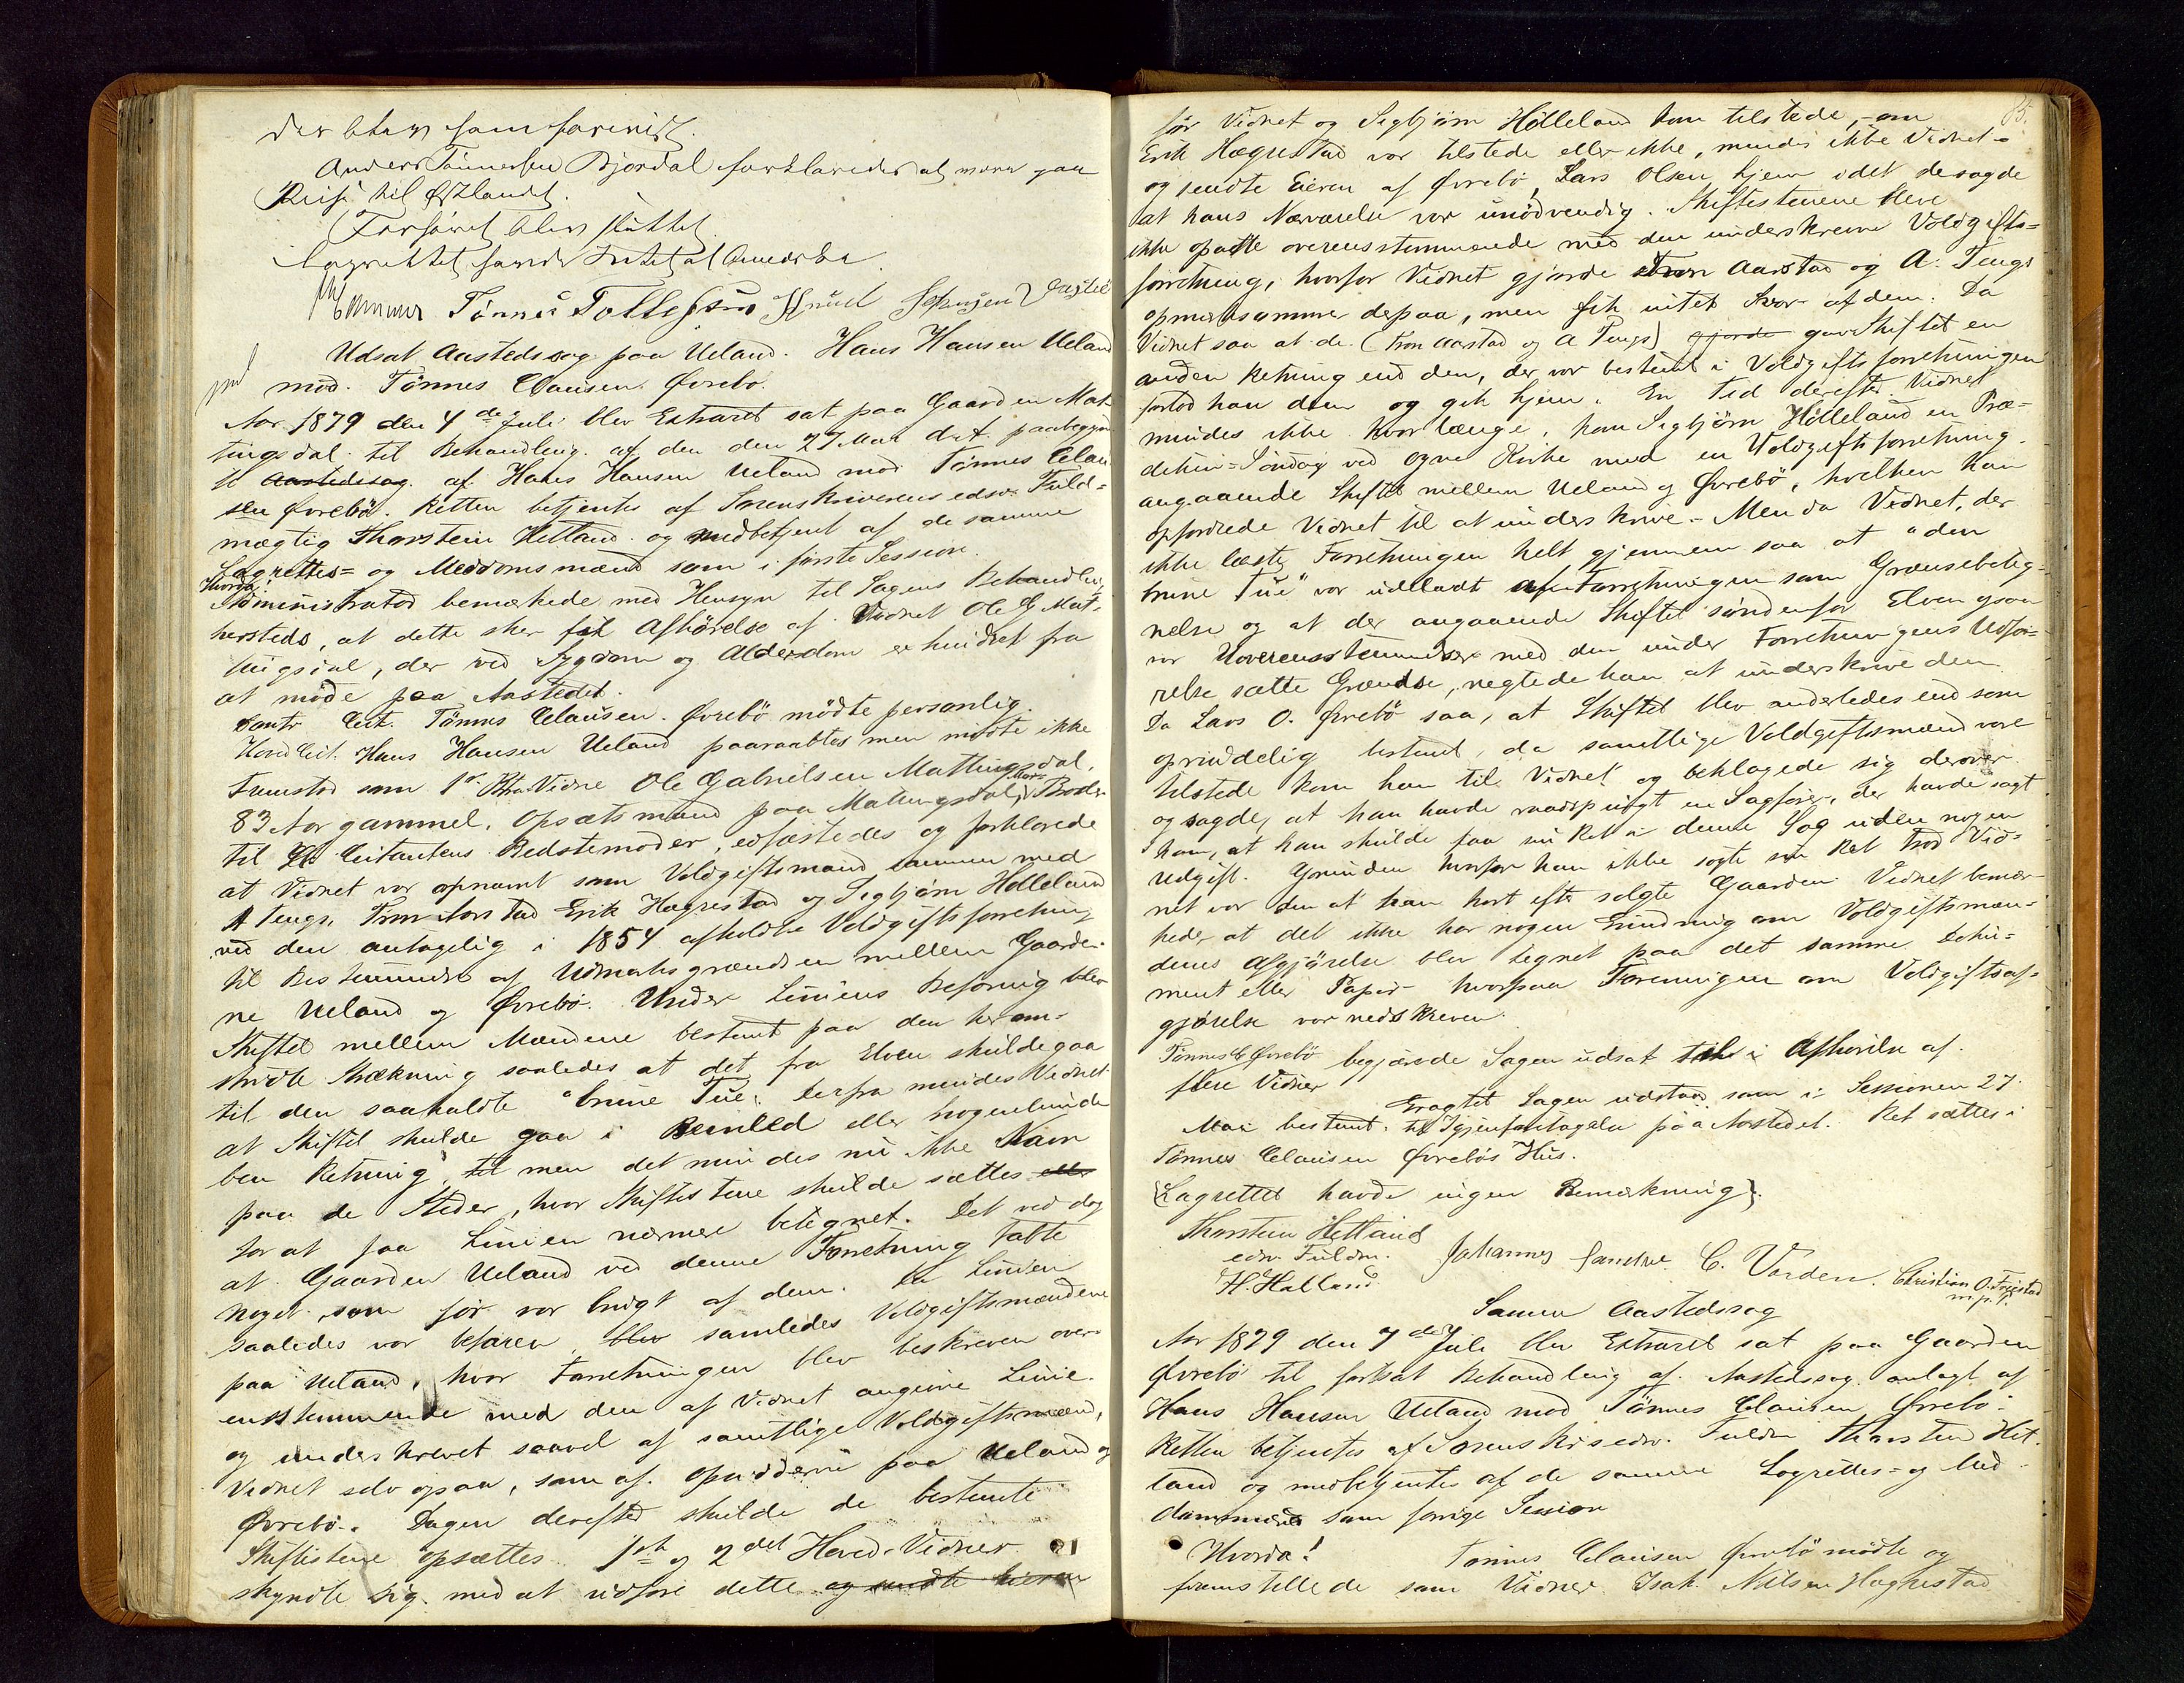 der blev
Anders Tønnesen Bjordal forklarede at maatte paa
Reise til Østlandet.
Forhøret blev sluttet
Lagrettet havde Intet at bemærke.
Tønnes Tollefsen Knud
Udsat Aastedssag paa Ueland. Hans Hansen Ueland
mod. Tønnes Clausen Øvrebø.
Aar 1879 den 4de Juli blev Extraret sat paa Gaarden Mat-
tingsdal til Behandling af den den 27 Mai d.A. paabegyn
te Aastedssag af Hans Hansen Ueland mod Tønnes Clau
sen Øvrebø. Retten betjentes af Sorenskriverens edsv. Fuld=
mægtig Thorstein Hetland og medbetjent af de samme
Lagrettes= og Meddomsmænd som i første Session.
Hvorda:
Administrator bemærkede med Hensyn til Sagens Behandling
hersteds, at dette sker for Afhørelse af Vidnet Ole G Mat-
tingsdal, der ved Sygdom og Alderdom er hindret fra
at møde paa Aastedet.
Contr Cit. Tønnes Clausen Øvrebø mødte personlig.
Hovedcit. Hans Hansen Ueland paaraabtes men mødte ikke
Fremstod som 1ste Vidne Ole Gabrielsen Mattingsdal,
83 Aar gammel, Opsætsmand paa Mattingsdal, Broder
til Citantens Bedstemoder, edfæstedes og forklarede
at Vidnet var opnævnt som Voldgiftsmand sammen med
A Tengs, Tron Aarstad Erik Hægrestad og Sigbjørn Hølleland
ved den antagelig i 1854 afholdte Voldgiftsforretning
til Bestemmelse af Udmarksgrændsen mellem Gaarde-
ne Ueland og Øvrebø. Under Liniens Befaring blev
Skiftet mellem Mændene bestemt paa den her om-
stridte Strækning saaledes at det fra Elven skulde gaa
til den saakaldte "brune Tue". Derfra mindes Vidnet
at Skiftet skulde gaa i Beenled eller nogenlunde
ben Retning til men det mindes nu ikke Navn
paa de Steder, hvor Skiftestene skulde sættes eller
for at faa Linien nærmere betegnet. Det ved dog
at Gaarden Ueland ved denne Forretning tabte
Noget, som før var brugt af dem. Da Linien
saaledes var befaren blev samledes Voldgiftsmændene
paa Ueland, hvor Forretningen blev beskreven over-
ensstemmende med den af Vidnet angivne Linie.
og underskrevet saavel af samtlige Voldgiftsmænd,
Vidnet selv ogsaa, som af Opsidderne paa Ueland og
Øvrebø. Dagen derefter skulde de bestemte
Skiftestene opsættes. 1ste og 2det Hoved-Vidner
skyndte sig med at udføre dette og sendte Eieren
85.
før Vidnet og Sigbjørn Hølleland kom tilstede, - om
Erik Hægrestad var tilstede eller ikke, mindes ikke Vidnet -
og sendte Eieren af Øvrebø, Lars Olsen hjem idet de sagde
at hans Nærværelse var unødvendig. Skiftestenene bleve
ikke opsatte overensstemmende med den underskrevne Voldgifts=
forretning, hvorfor Vidnet gjorde Tron Aarstad og A. Tengs
opmærksomme derpaa, men fik intet Svar af dem. Da
Vidnet saa at de (Tron Aarstad og A Tengs) gjorde gav Skiftet en
anden Retning end den, der var bestemt i Voldgiftsforretningen
forlod han dem og gik hjem. En Tid derefter Vidnet
mindes ikke hvor længe, kom Sigbjørn Hølleland en Præ-
diken=Søndag ved Ogne Kirke med en Voldgiftsforretning
angaaende Skiftet mellem Ueland og Øvrebø, hvilken han
opfordrede Vidnet til at underskrive. - Men da Vidnet, der
ikke læste Forretningen helt gjennem saa at "den
brune Tue" var udeladt af Forretningen som Grænsebeteg-
nelse og at der angaaende Skiftet søndenfor Elven ogsaa
var Uoverensstemmelse med den under Forretningens Udfø-
relse satte Grændse, negtede han at underskrive den.
Da Lars O. Øvrebø saa, at Skiftet blev anderledes end som
oprindelig bestemt, da samtlige Voldgiftsmænd vare
tilstede kom han til Vidnet og beklagede sig derover
og sagde, at han havde raadspurgt en Sagfører, der havde sagt
ham, at han skulde faa sin Ret i denne Sag uden nogen
Udgift. Grunden hvorfor han ikke søgte sin Ret trod Vid-
net var den at han kort efter solgte Gaarden. Vidnet bemær-
keder at det ikke har nogen Erindring om Voldgiftsmæn-
denes Afgjørelse blev tegnet paa det samme Doku=
ment eller Papir hvorpaa Foreningen om Voldgiftsaf-
gjørelse var nedskreven.
Tønnes C Øvrebø begjærede Sagen udsat til Afhørelse af
flere Vidner
Eragtet Sagen udstaar som i Sessionen 27
Mai bestemt til Igjenforetagelse paa Aastedet. Ret sættes i
Tønnes Clausen Øvrebøs Hus.
(Lagrettet havde ingen Bemærkning).
Thorstein Hetland
edsv. Fuldm. Johannes C. Varden. Christian O. Frøestad
H. Halland m.p.P.
Samme Aastedssag
Aar 1879 den 7de Juli blev Extraret sat paa Gaarden
Øvrebø til fortsat Behandling af Aastedssag anlagt af
Hans Hansen Ueland mod Tønnes Clausen Øvrebø.
Retten betjentes af Sorenskr. edsv. Fuldm Thorstein Het-
land og medbetjentes af de samme Lagrettes- og Med-
domsmænd som forrige Session
Hvorda! Tønnes Clausen Øvrebø mødte og
fremstillede som Vidner Isak Nilsen Hæghestad